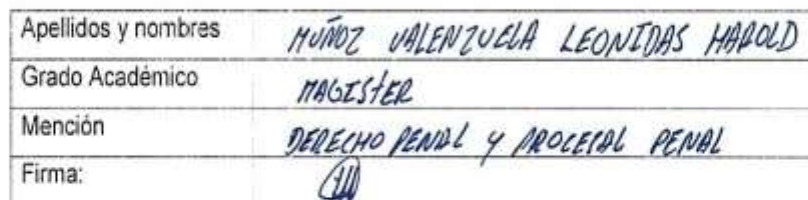 Apellidos y nombres MUÑOZ VALENZUELA LEONIDAS HAROLD
Grado Académico MAGISTER
Mención DERECHO PENAL Y PROCESAL PENAL
Firma: